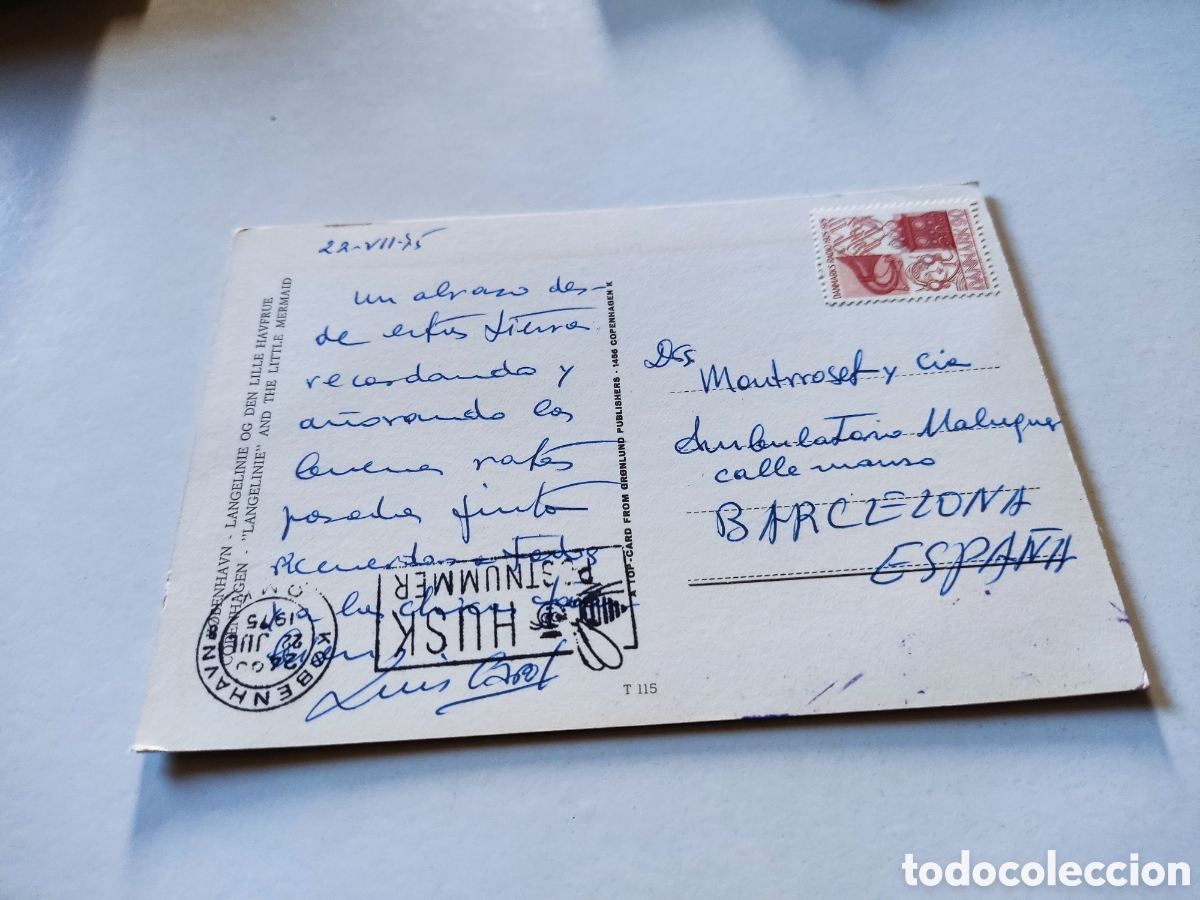 22-VII-75
Un abrazo des-
de estas tierras
recordando y
añorando los
buenos ratos
pasados juntos
Recuerdos a todos
y a las chicas
Luis
KØBENHAVN - LANGELINIE OG DEN LILLE HAVFRUE
COPENHAGEN - "LANGELINIE" AND THE LITTLE MERMAID
A TOP-CARD FROM GRØNLUND PUBLISHERS - 1456 COPENHAGEN K
T 115
KØBENHAVN
22
JUL
1975
HUSK
POSTNUMMER
DANMARKS RADIO 1925-1975
DANMARK 90
Drs
Montrroset y Cia
Ambulatorio Maluquer
calle manso
BARCELONA
ESPAÑA
todocoleccion